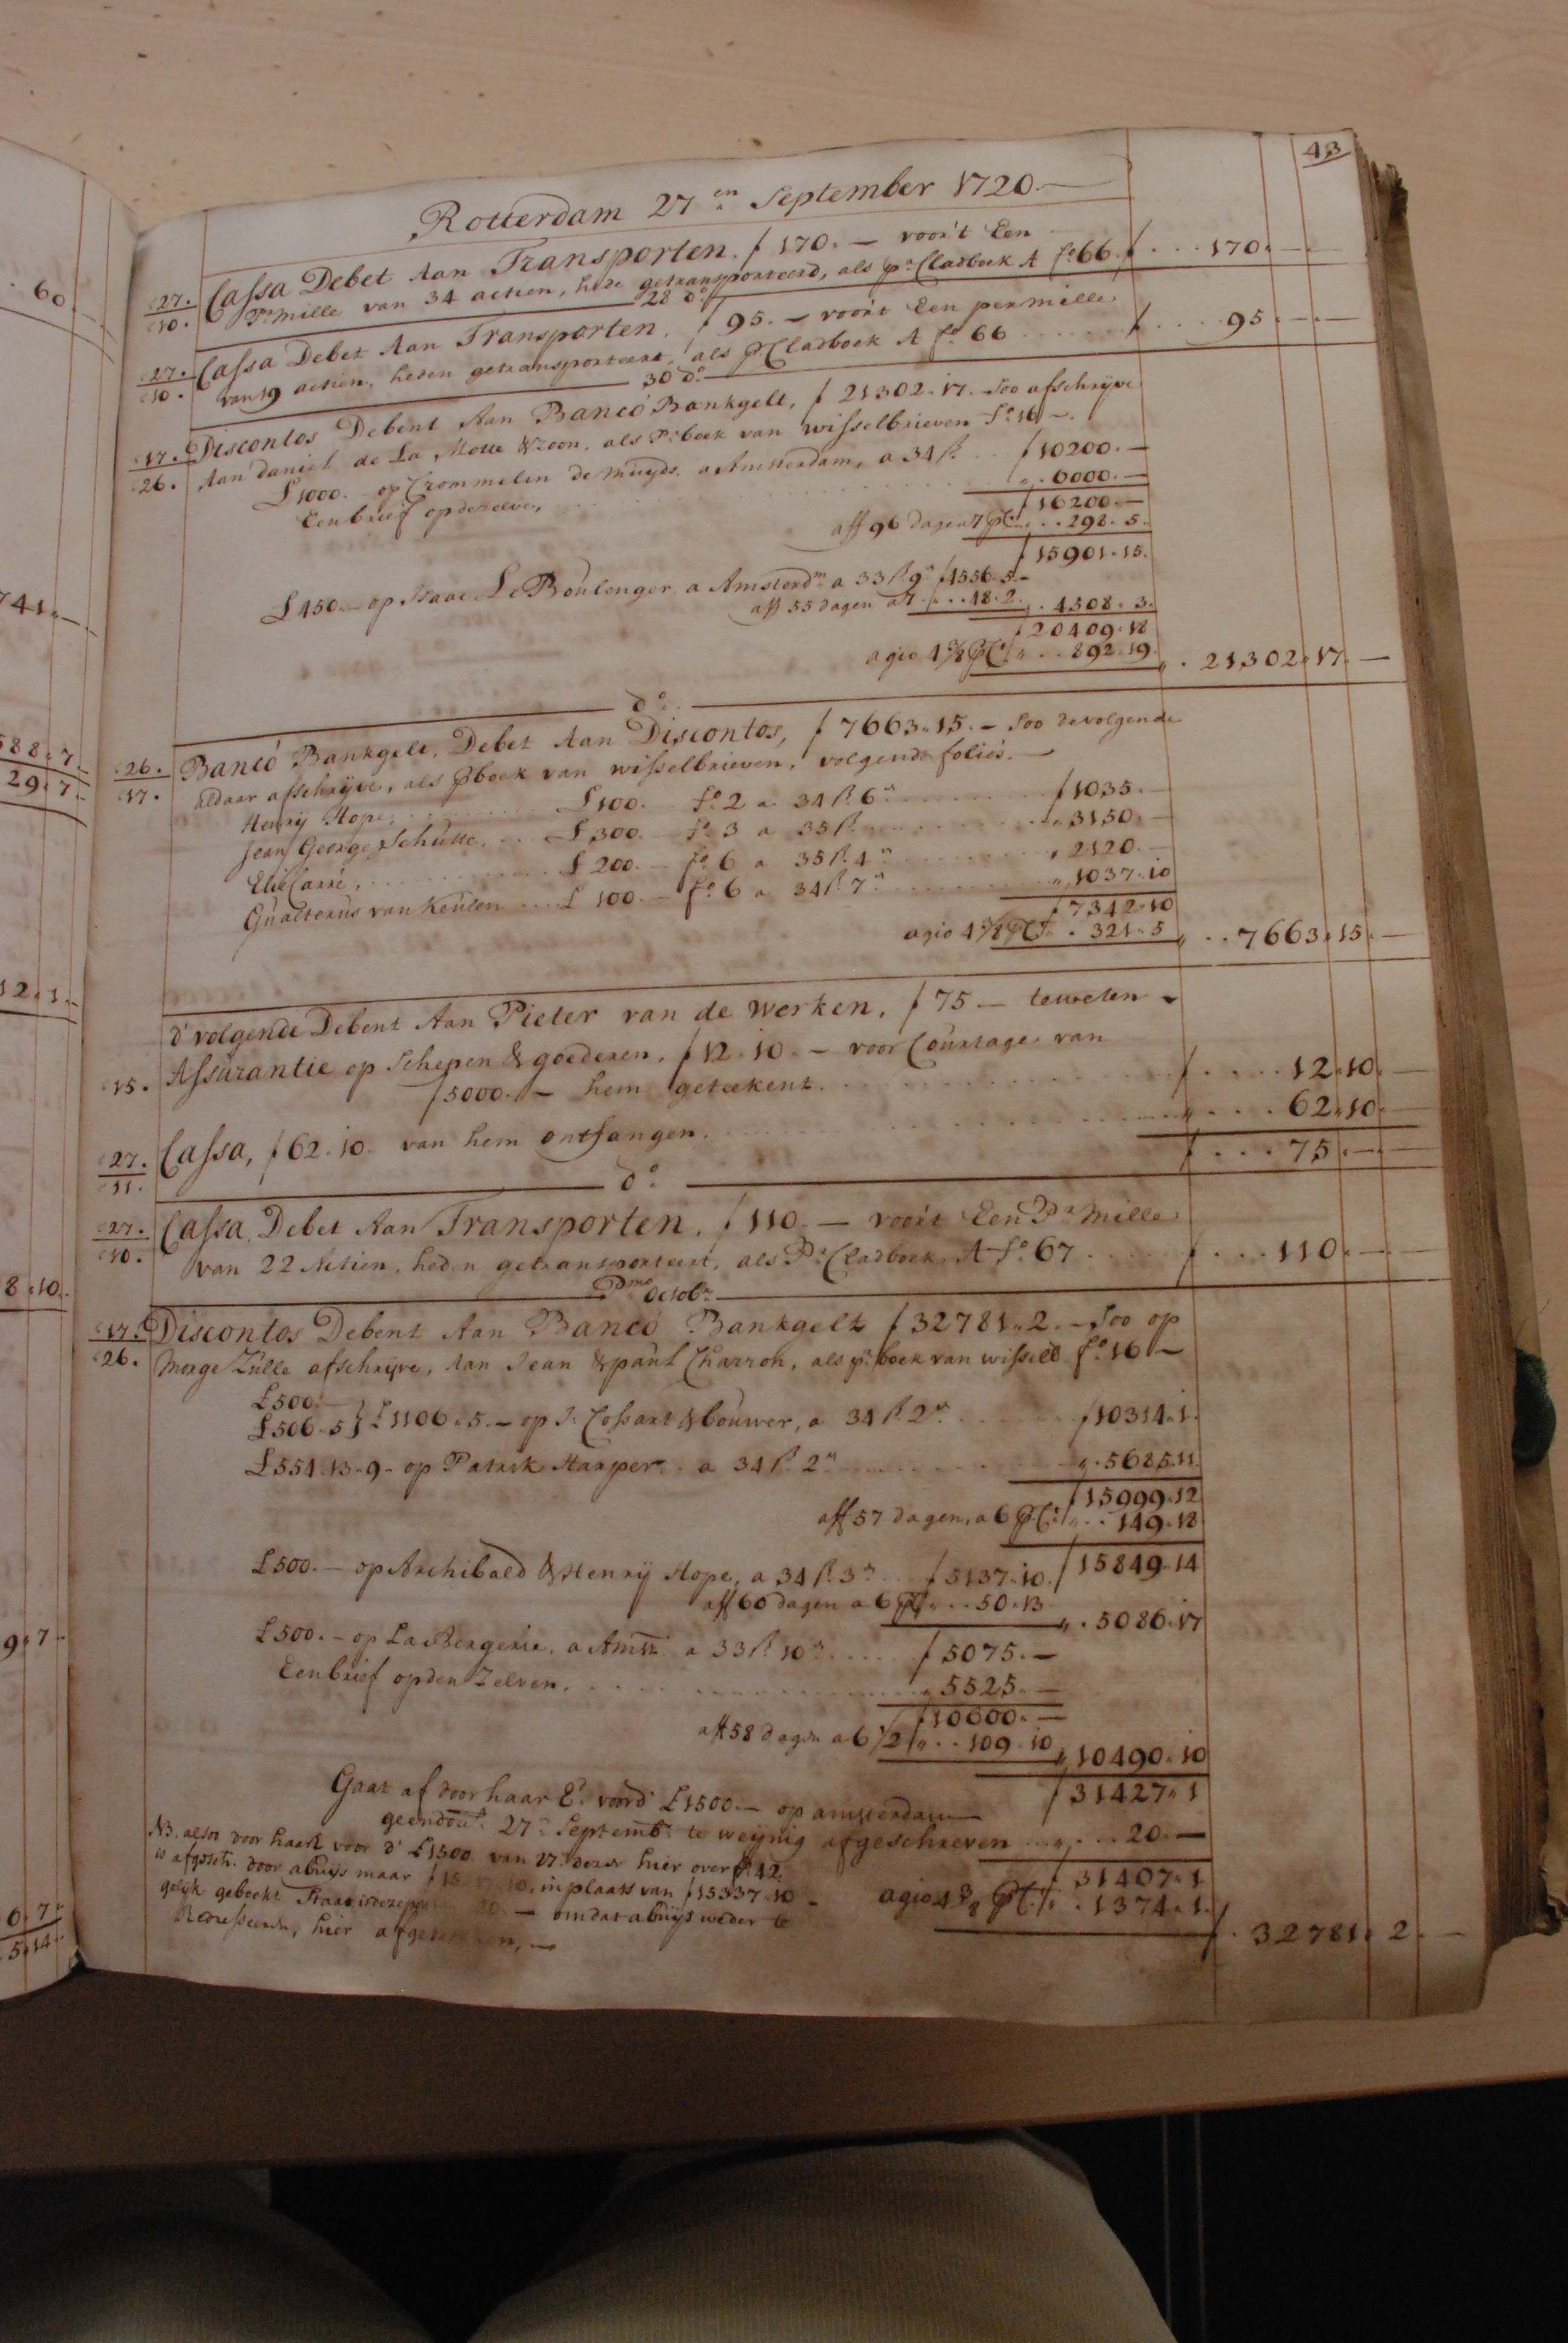 43
Rotterdam 27en September 1720.—
27. Cassa Debet Aan Transporten. ƒ 170. — voor't Een
10. Pr mille van 34 actien, hede getransporteerd, als pr Cladboek A fo 66. ƒ . . . 170. — —
28 do
27. Cassa Debet Aan Transporten. ƒ 95. — voor't Een per mille
10. van 19 actien, heden getransporteert, als P Cladboek A fo 66 ƒ . . . . 95. — —
30 do
17. Discontos Debent Aan Banco Bankgelt, ƒ 21302. 17. — Soo afschrijve
26. Aan daniel de La Motte & Zoon, als Pr boek van wisselbrieven fo 16 —.
£ 1000. — op Crommelin de muijds. a Amsterdam, a 34 ß. . . ƒ 10200. —
Een brief op dezelve, „ . 6000. —
ƒ 16200. —
aff 96 dagen a 7 P Co „ . . 298. 5.
ƒ 15901. 15.
£ 450. — op Isaac Le Boulenger, a Amsterdm a 33 ß. 9 ƒ 4556. 5. —
aff 55 dagen a 7 . . . 48. 2. „ . 4508. 3.
ƒ 20409. 18
agio 4 3/8 P Co „ . . 892. 19. „ . 21302. 17. —
do
26. Banco Bankgelt, Debet Aan Discontos, ƒ 7663. 15. — Soo de volgende
17. aldaar afschrijve, als P boek van wisselbrieven, volgende folios. —
Henrij Hope, £ 100. — fo 2 a 34 ß. 6 ƒ 1035. —
Jean George Schutte, . . £ 300. — fo 3 a 35 ß. „ 3150. —
Elie Carré, £ 200. — fo 6 a 35 ß. 4 „ 2120. —
Gualterus van Keulen . . . . £ 100. — fo 6 a 34 ß. 7 „ 1037. 10
ƒ 7342. 10
agio 4 3/8 P Co „ . 321. 5 „ . . 7663. 15. —
d'volgende Debent Aan Pieter van de Werken. ƒ 75 — teweten
15. Assurantie op Schepen & goederen. ƒ 12. 10. — voor Courtage van
ƒ 5000. — hem geteekent. ƒ . . . . 12. 10. —
27. Cassa, ƒ 62. 10. van hem ontfangen. „ . . . . 62. 10. —
11. ƒ . . . . 75. — —
do
27. Cassa, Debet Aan Transporten. ƒ 110. — voor't Een Pr Mille
10. van 22 Actien, heden getransporteert, als Pr Cladboek A fo 67 ƒ . . . . 110. — —
Pmo Octobr
17. Discontos Debent Aan Banco Bankgelt ƒ 32781. 2. — Soo op
26. Morge Zulle afschrijve, Aan Jean & paul Charron, als pr boek van wisselb fo 16 —
£ 500. —
£ 506. 5 } £ 1106. 5. — op J. Cossart & bouwer, a 34 ß. 2 ƒ 10314. 1.
£ 554. 13. 9 - op Patrik Harper . a 34 ß. 2 „ . 5685. 11.
ƒ 15999. 12
aff 57 dagen, a 6 P Co „ . . 149. 18
£ 500. — op Archibald & Henrij Hope, a 34 ß. 3 . . . ƒ 5137. 10. ƒ 15849. 14
aff 60 dagen a 6 P Co „ . . 50. 13
„ . 5086. 17
£ 500. — op La Bergerie, a Amst. a 33 ß. 10 . . . . . ƒ 5075. —
Een brief op den Zelven. „ 5525. —
ƒ 10600. —
aff 58 dagen a 6 1/2 „ . . 109. 10 „ 10490. 10
ƒ 31427. 1
Gaat af door haar Ed. voord £ 1500. — op amsterdam
geendoss. 27 Septembr te weijnig afgeschreven . . . „ . . . 20. —
NB. alsoo door haarE voor d' £ 1500. van 27. dezer hier over fo 42.
is afgeschr. door abuijs maar ƒ 15 17. 10, in plaats van ƒ 15337. 10 -
ƒ 31407. 1
agio 4 3/8 P Co „ . 1374. 1. ƒ . 32781. 2. —
gelijk geboekt 20. — om dat abuijs weder te
Redresseeren, hier afgetrokken, —
60
741. —
588. 7. —
29. 7. —
12. 1. —
8. 10. —
9. 7 —
0. 7. —
5. 14. —